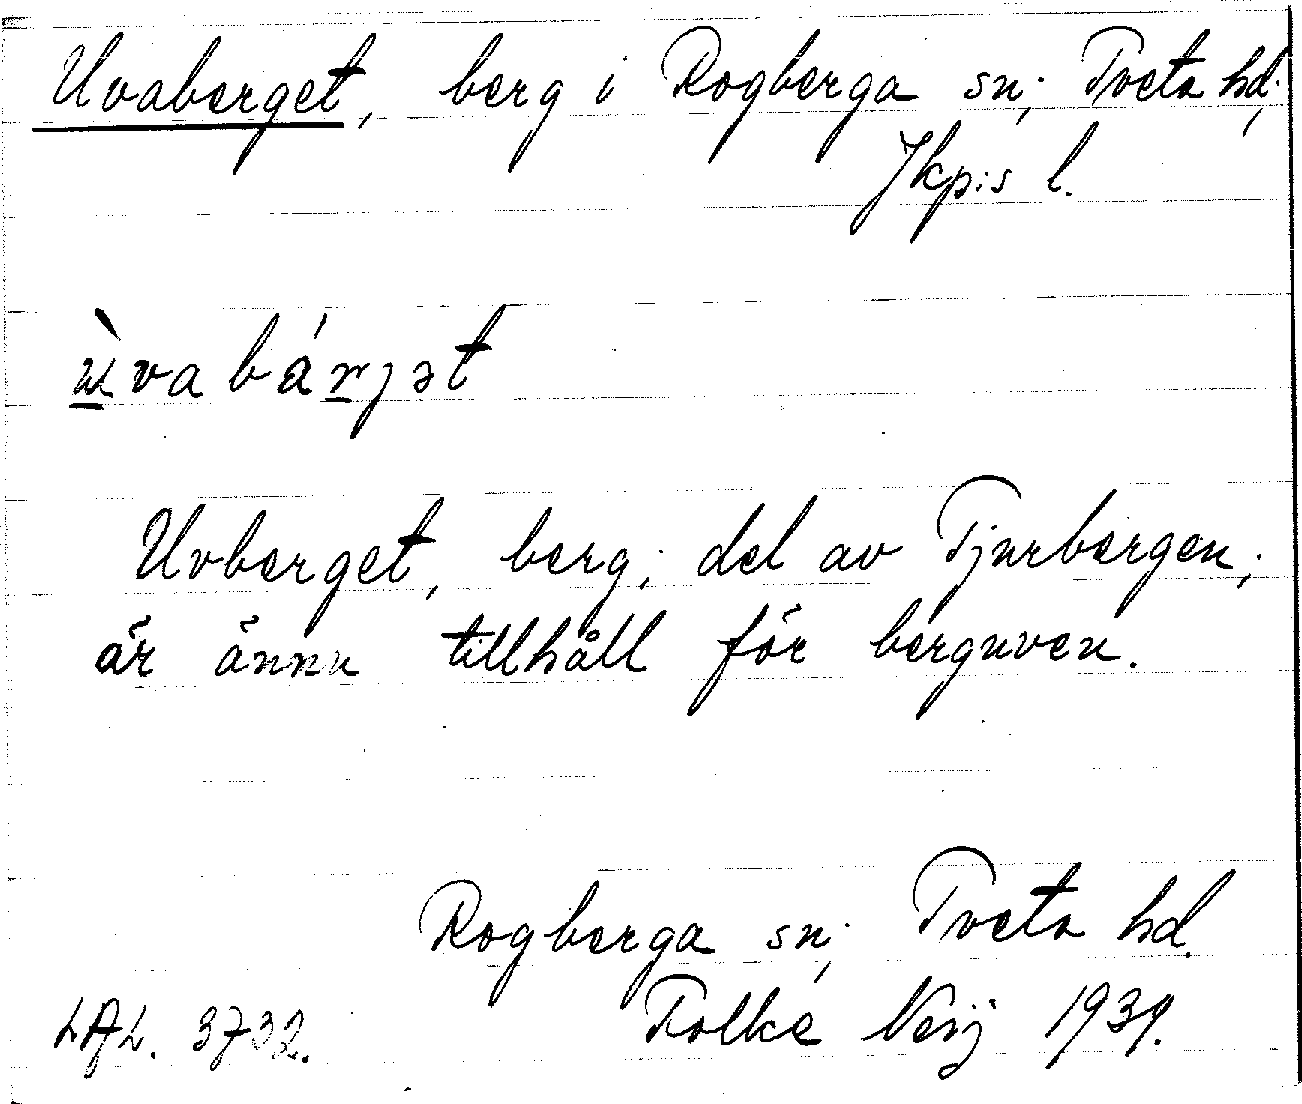 Uvaberget, berg i Rogberga sn; Tveta hd;
Jkp:s l.
ùvabárjət
Uvberget, berg; del av Tjurbergen;
är ännu tillhåll för berguven.
Rogberga sn; Tveta hd.
LAL. 3732.
Folke Neij 1939.